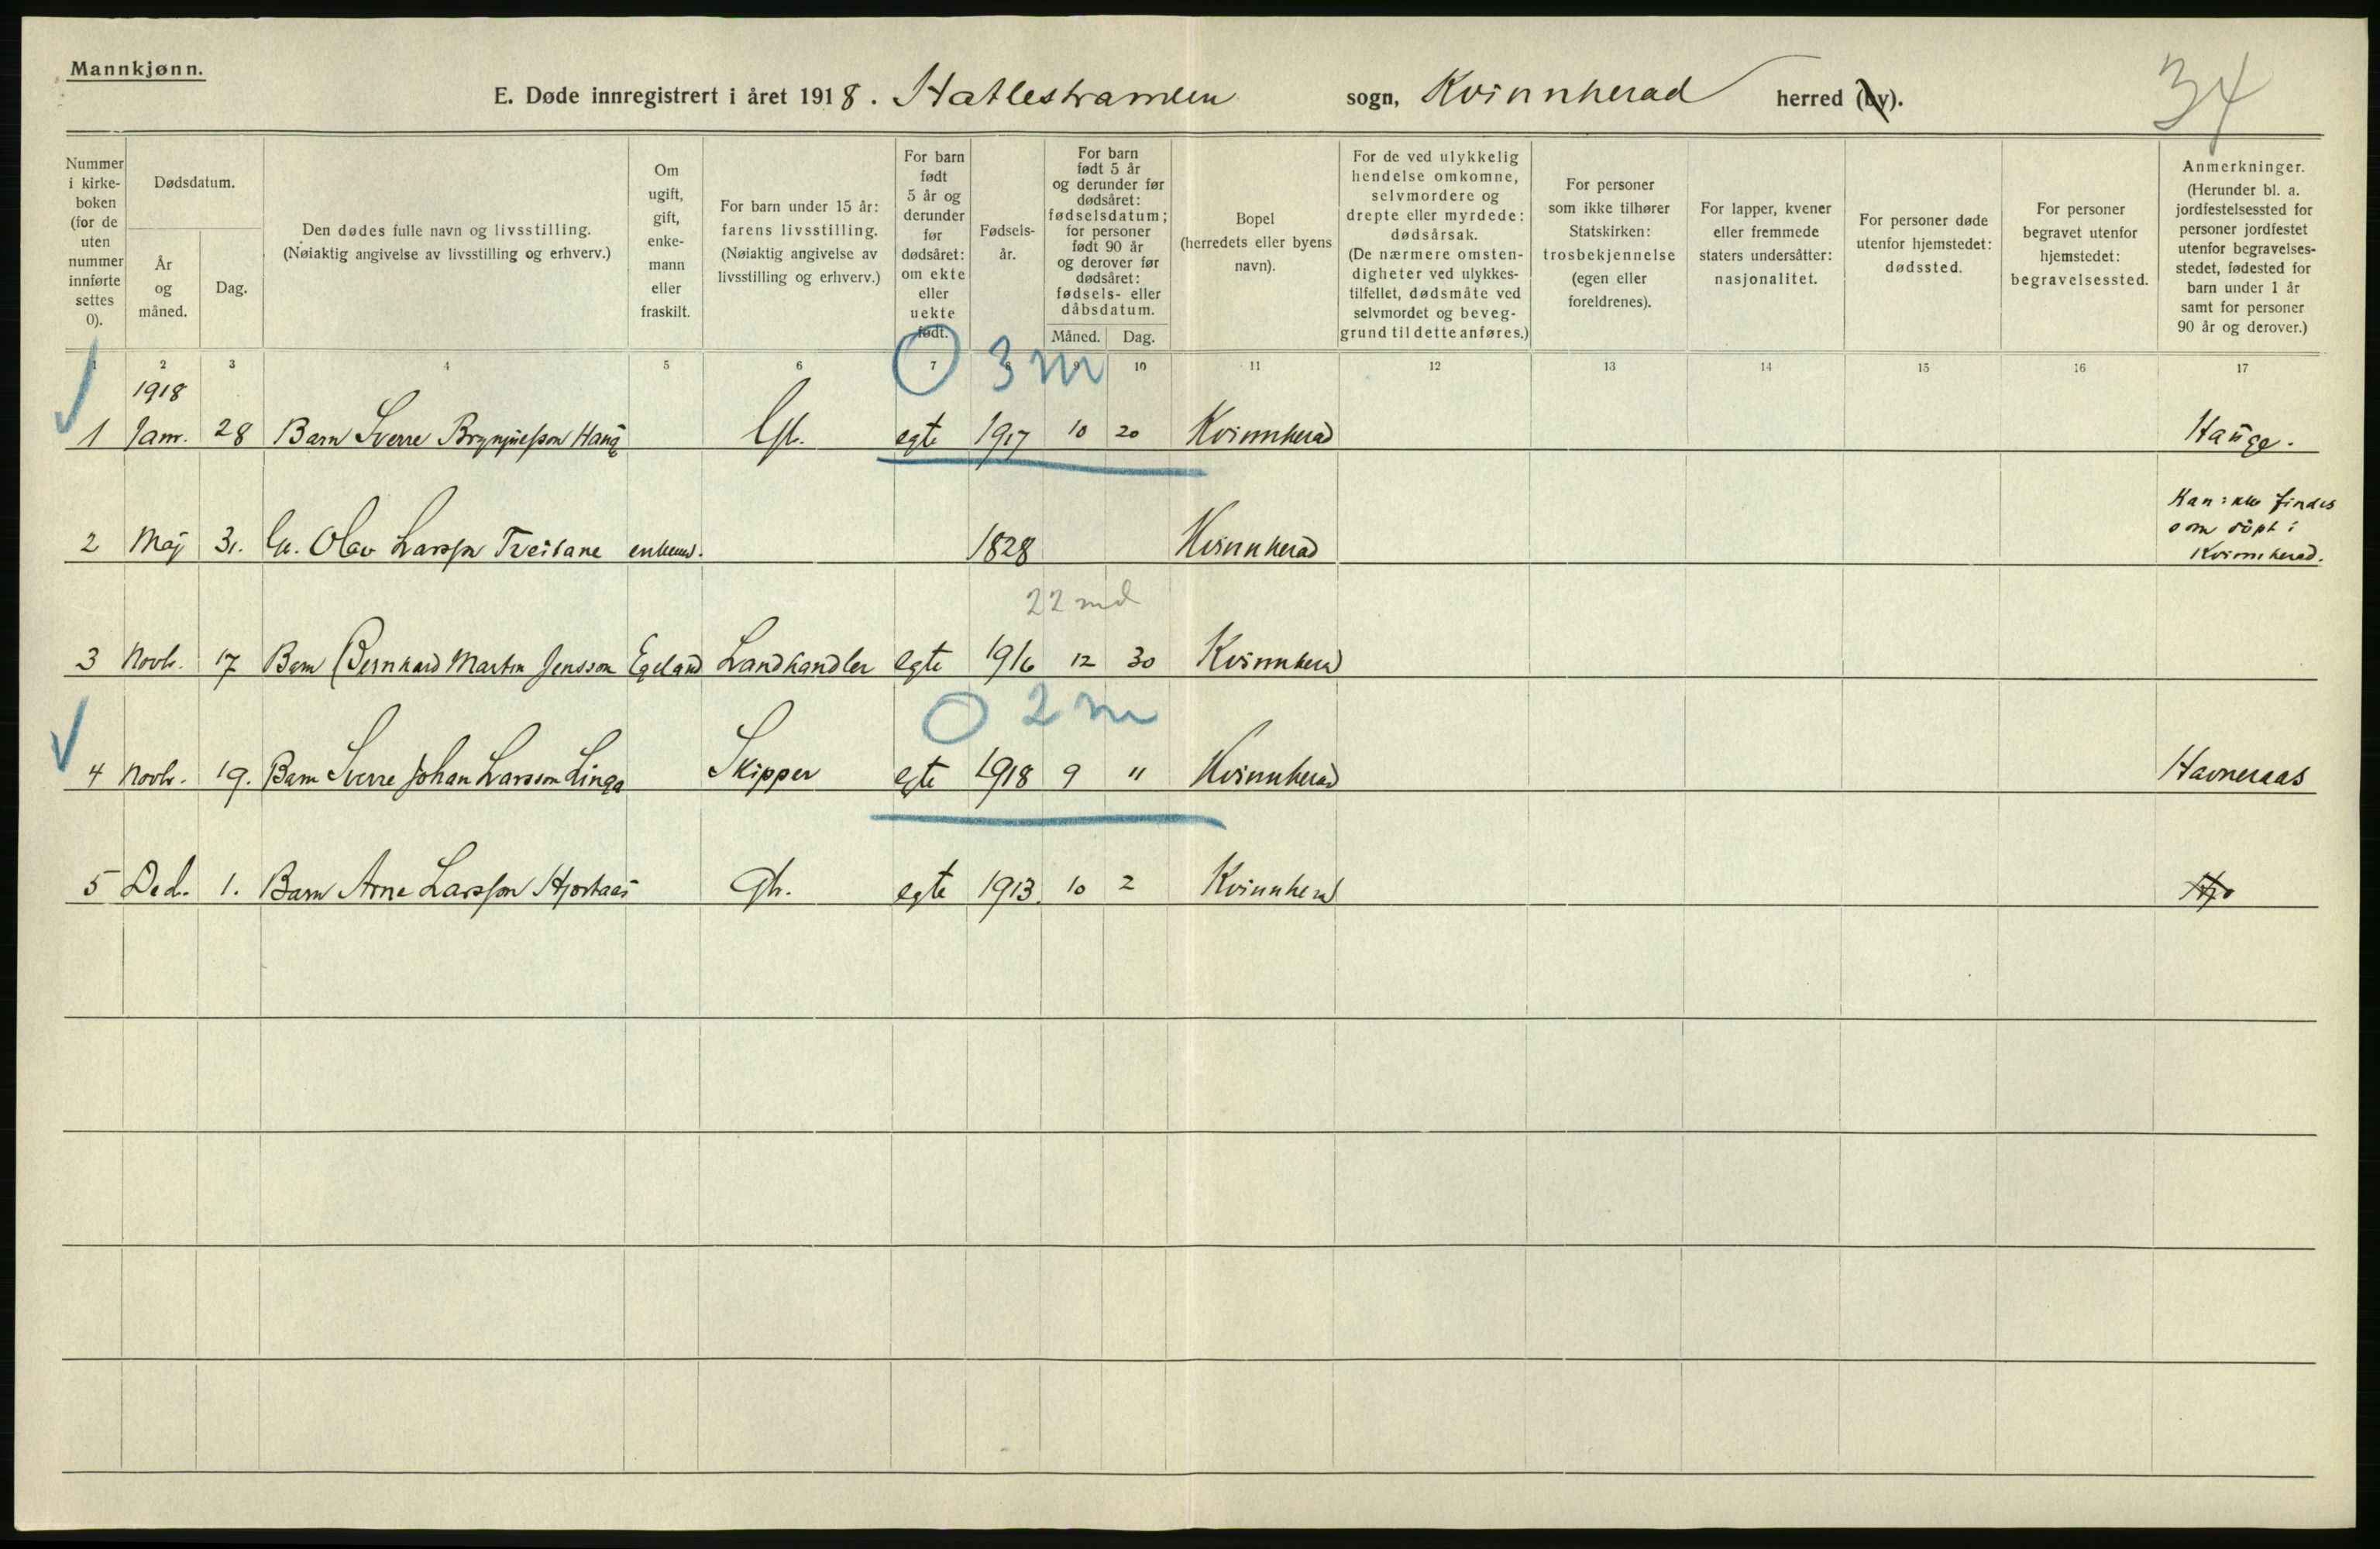 Mannkjønn.
34
E. Døde innregistrert i året 1918. Hatlestranden sogn, Kvinnherad herred (by).
Nummer i kirke- boken (for de uten nummer innførte settes 0).
Dødsdatum.
År og måned.
Dag.
Den dødes fulle navn og livsstilling.
(Nøiaktig angivelse av livsstilling og erhverv.)
Om ugift, gift, enke- mann eller fraskilt.
For barn under 15 år: farens livsstilling. (Nøiaktig angivelse av livsstilling og erhverv.)
For barn født 5 år og derunder før dødsåret: om ekte eller uekte født.
Fødsels- år.
For barn født 5 år og derunder før dødsåret: fødselsdatum; for personer født 90 år og derover før dødsåret: fødsels- eller dåbsdatum.
Måned. Dag.
Bopel (herredets eller byens navn).
For de ved ulykkelig hendelse omkomne, selvmordere og drepte eller myrdede: dødsårsak. (De nærmere omsten- digheter ved ulykkes- tilfellet, dødsmåte ved selvmordet og beveg- grund til dette anføres.)
For personer som ikke tilhører Statskirken: trosbekjennelse (egen eller foreldrenes).
For lapper, kvener eller fremmede staters undersåtter: nasjonalitet.
For personer døde utenfor hjemstedet: dødssted.
For personer begravet utenfor hjemstedet: begravelsessted.
Anmerkninger. (Herunder bl. a. jordfestelsessted for personer jordfestet utenfor begravelses- stedet, fødested for barn under 1 år samt for personer 90 år og derover.)
1 2 3 4 5 6 7 8 9 10 11 12 13 14 15 16 17
0 3 m
1918
1 Janr. 28 Barn Sverre Brynjulfsson Haug Gb. egte 1917 10 20 Kvinnherad Hauge.
2 Maj 31. Olav Larsson Tveitane enkem. 1828 Kvinnherad Kan ikke findes som döpt i Kvinnherad.
22 md
3 Novbr. 17 Barn Bernhard Martin Jensson Egeland Landhandler egte 1916 12 30 Kvinnherad
0 2 m
4 Novbr. 19. Barn Sverre Johan Larsson Linga Skipper egte 1918 9 11 Kvinnherad Havneraas
5 Decb. 1. Barn Arne Larsson Hjortaas Gb. egte 1913. 10 2 Kvinnherad